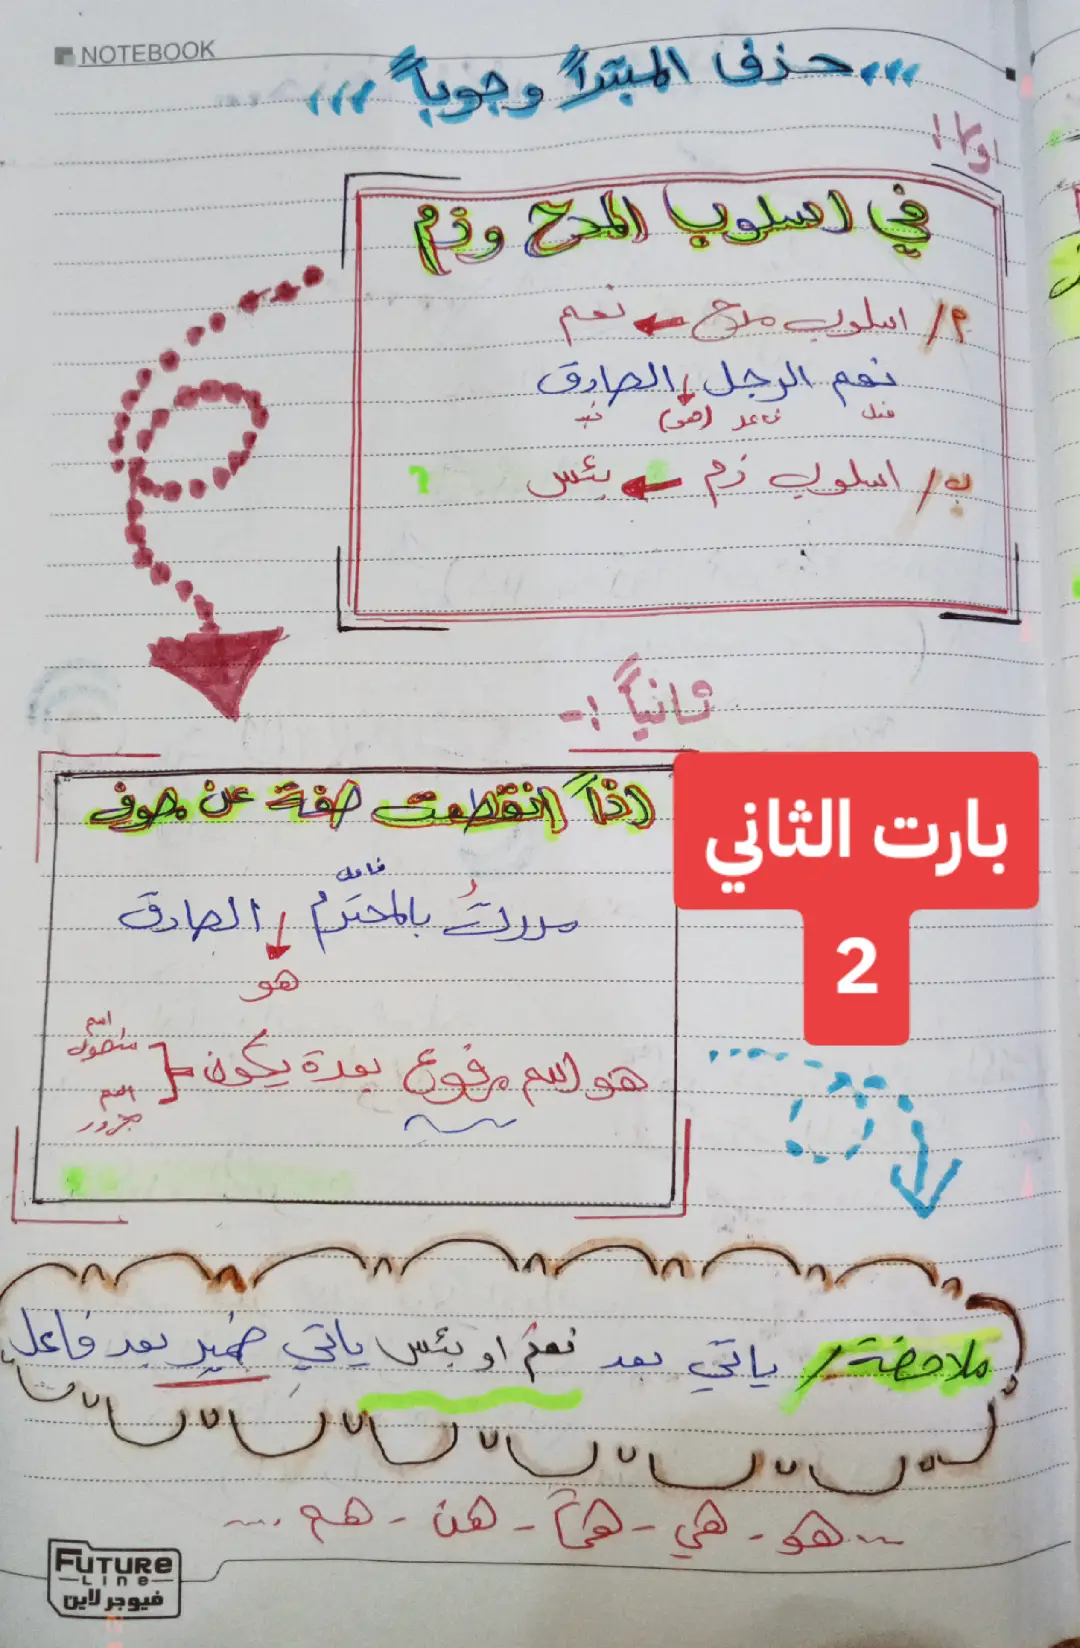 NOTEBOOK
حذف المبتدأ وجوباً
اولا
في اسلوب المدح وذم
م/ اسلوب مدح ← نعم
نعم الرجل الصادق
فعل فاعل (هو) خبر
ب/ اسلوب ذم ← بئس
ثانياً :-
اذاً انقطعت صفة عن
بارت الثاني
2
فاعل
مررتُ بالمحترم الصادق
هو
هو اسم مرفوع بعدة يكون
اسم
منصوب
اسم
مجرور
ملاحضة/ ياتي بعد نعم او بئس ياتي ضمير بعد فاعل
هو - هي - هما - هن - هم
FUTURE
LINE
فيوجر لاين